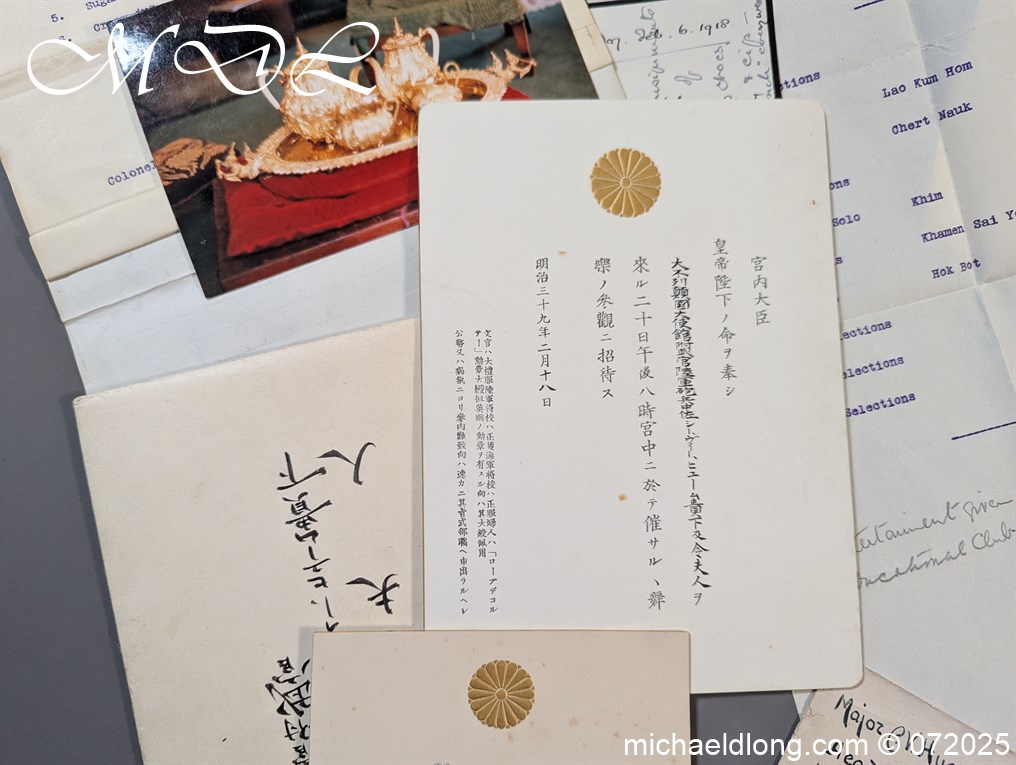 5. Suga
6. Cr
Colonel
MDL
Feb. 6. 1918
ctions
Lao Kum Hom
Chert Nauk
ons
Solo
Khim
Khamen Sai Y
Hok Bot
lections
elections
Selections
tertainment given
ucational Club
宮内大臣
皇帝陛下ノ命ヲ奉シ
大不列顛國大使館附武官陸軍砲兵中佐シー、ヴィー、ヒューム貴下及令夫人ヲ
來ル二十日午後八時宮中ニ於テ催サルヽ舞
樂ノ參觀ニ招待ス
明治三十九年二月十八日
文官ハ大禮服陸軍將校ハ正装海軍將校ハ正服婦人ハ「ローブデコル
テー」勲章大綬但英國ノ勲章ヲ有スル向ハ其大綬佩用
公務又ハ病氣ニヨリ參内難致向ハ速カニ其旨式部職ヘ申出ラルヘシ
人
下
貴
夫
武官
Major
michaeldlong.com © 072025